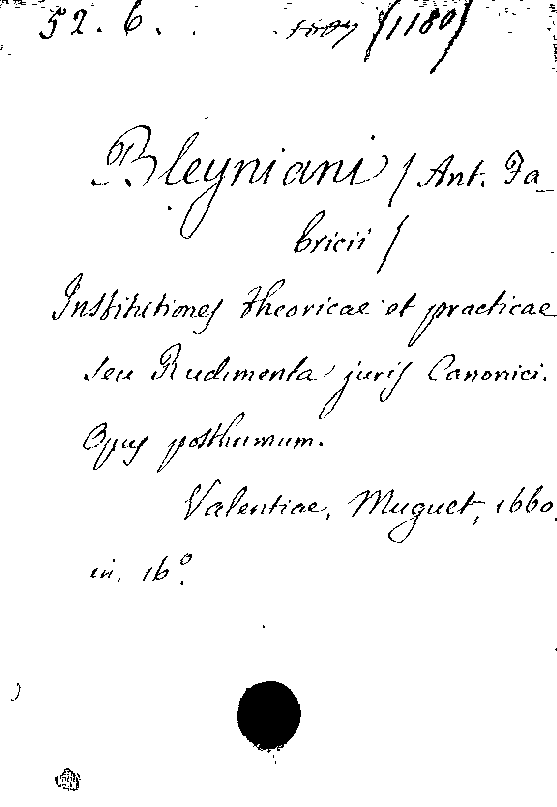 52. 6. (1180)
Bleyniani / Ant. Fa_
bricii /
Institutiones theoricae et practicae
seu Rudimenta juris Canonici.
Opus posthumum.
Valentiae, Muguet, 1660.
in 16º.